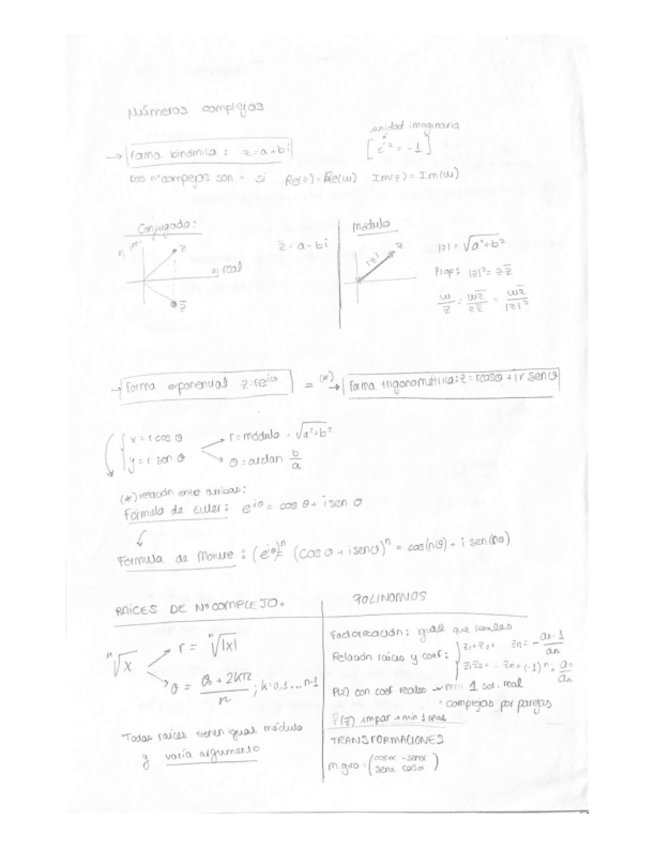 Números complejos
→ Forma binómica: z = a + bi
unidad imaginaria
[i² = -1]
Dos nº complejos son = si Re(z) = Re(w) Im(z) = Im(w)
Conjugado:
z
real
z̅
z̅ = a - bi
Módulo
|z|
z
|z| = √a²+b²
Prop: |z|² = z z̅
w/z = wz̅/zz̅ = wz̅/|z|²
→ Forma exponencial z = re^iθ = (*) → Forma trigonométrica: z = r cos θ + i r sen θ
x = r cos θ
y = r sen θ
r = módulo = √a²+b²
θ = arctan b/a
(*) relación entre ambas:
Fórmula de Euler: e^iθ = cos θ + i sen θ
Fórmula de Moivre: (e^iθ)^n = (cos θ + i sen θ)^n = cos(nθ) + i sen(nθ)
RAÍCES DE Nº COMPLEJO.
ⁿ√x
r = ⁿ√|x|
θ = θ₀ + 2kπ / n ; k = 0, 1 ... n-1
Todas raíces tienen igual módulo
y varía argumento
POLINOMIOS
Factorización: igual que reales
Relación raíces y coef: z₁+z₂+ ... zn = - an-1/an
z₁z₂ ... zn = (-1)^n · a₀/an
P(z) con coef reales → min 1 sol. real
· complejas por parejas
P(z) impar → min 1 real
TRANSFORMACIONES
m. giro: (cos α -sen α
sen α cos α)